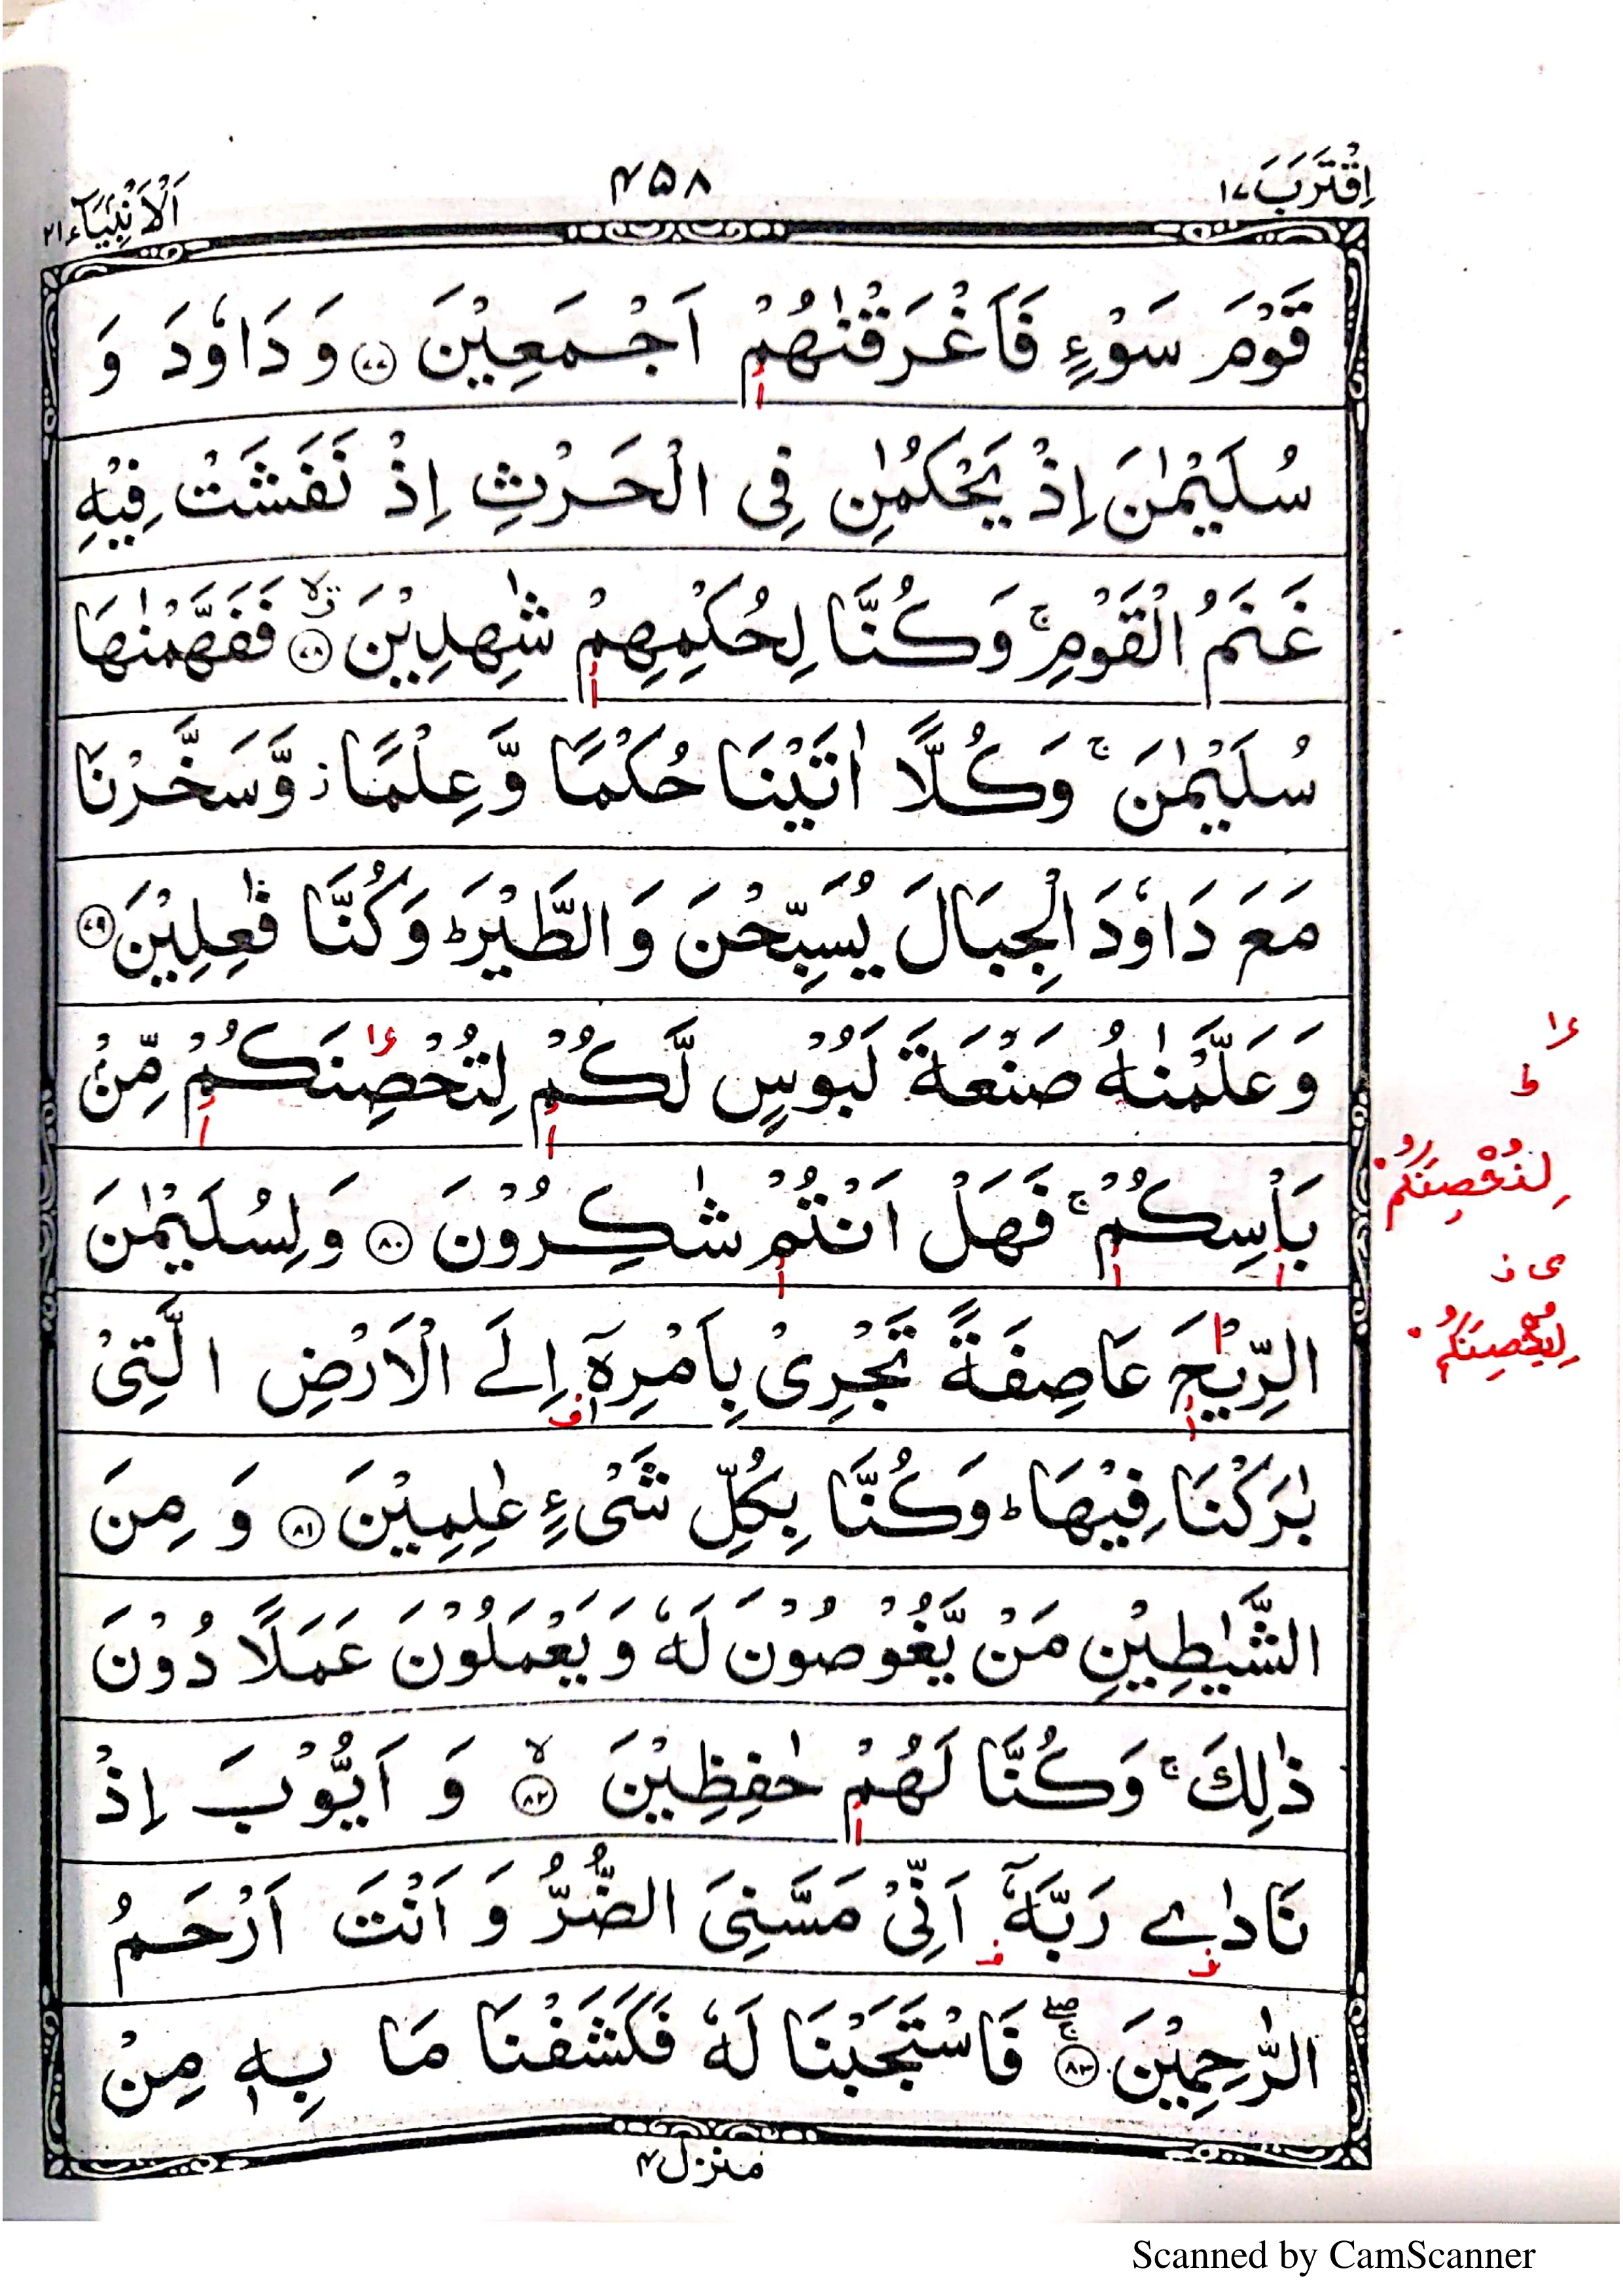 اِقْتَرَبَ ١٧
۴۵۸
اَلْاَنْۢبِيَآء ٢١
قَوْمَ سَوْءٍ فَاَغْرَقْنٰهُمْ اَجْمَعِيْنَ ﴿٧٧﴾ وَ دَاوٗدَ وَ
سُلَيْمٰنَ اِذْ يَحْكُمٰنِ فِى الْحَرْثِ اِذْ نَفَشَتْ فِيْهِ
غَنَمُ الْقَوْمِ ۚ وَكُنَّا لِحُكْمِهِمْ شٰهِدِيْنَ ﴿٧٨﴾ فَفَهَّمْنٰهَا
سُلَيْمٰنَ ۚ وَكُلًّا اٰتَيْنَا حُكْمًا وَّ عِلْمًا ز وَّ سَخَّرْنَا
مَعَ دَاوٗدَ الْجِبَالَ يُسَبِّحْنَ وَ الطَّيْرَ ؕ وَكُنَّا فٰعِلِيْنَ ﴿٧٩﴾
وَ عَلَّمْنٰهُ صَنْعَةَ لَبُوْسٍ لَّكُمْ لِتُحْصِنَكُمْ مِّنْۢ
ءا
ط
لِنُحْصِنَكُمْ
بَاْسِكُمْ ۚ فَهَلْ اَنْتُمْ شٰكِرُوْنَ ﴿٨٠﴾ وَ لِسُلَيْمٰنَ
ى ز
لِيُحْصِنَكُمْ
الرِّيْحَ عَاصِفَةً تَجْرِىْ بِاَمْرِهٖۤ اِلَى الْاَرْضِ الَّتِىْ
بٰرَكْنَا فِيْهَا ؕ وَكُنَّا بِكُلِّ شَىْءٍ عٰلِمِيْنَ ﴿٨١﴾ وَ مِنَ
الشَّيٰطِيْنِ مَنْ يَّغُوْصُوْنَ لَهٗ وَ يَعْمَلُوْنَ عَمَلًا دُوْنَ
ذٰلِكَ ۚ وَكُنَّا لَهُمْ حٰفِظِيْنَ ﴿٨٢﴾ وَ اَيُّوْبَ اِذْ
نَادٰى رَبَّهٗۤ اَنِّىْ مَسَّنِىَ الضُّرُّ وَ اَنْتَ اَرْحَمُ
الرّٰحِمِيْنَ ﴿٨٣﴾ فَاسْتَجَبْنَا لَهٗ فَكَشَفْنَا مَا بِهٖ مِنْ
منزل ۴
Scanned by CamScanner